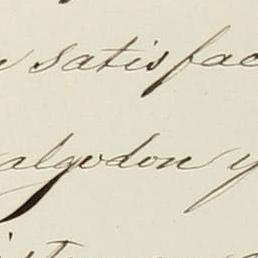 satisfac
algodon y